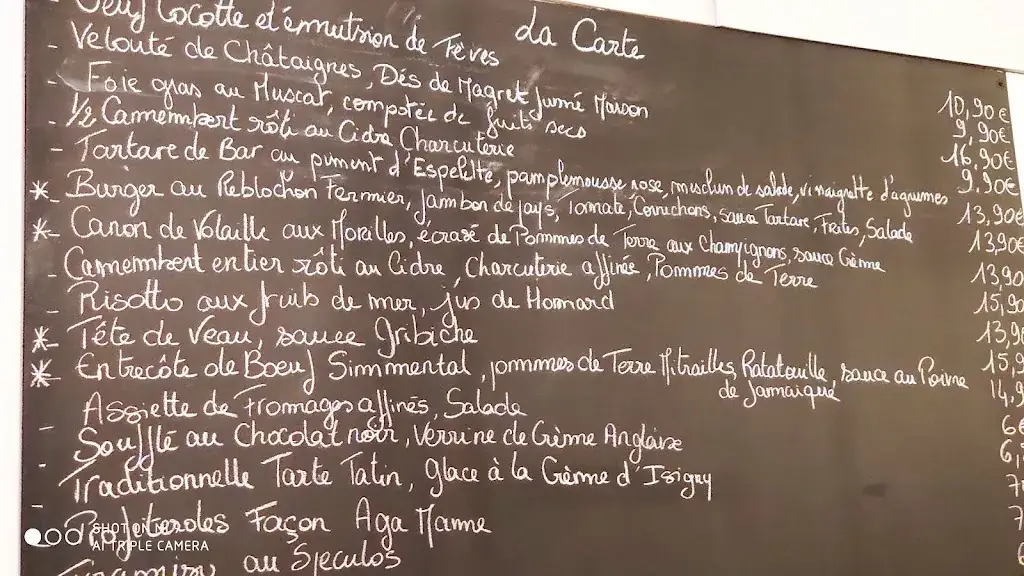 La Carte
- Oeuf Cocotte et émultsion de Fèves
- Velouté de Châtaignes, Dés de Magret fumé Maison 10,90€
- Foie gras au Muscat, compotée de fruits secs 9,90€
- 1/2 Camembert rôti au Cidre Charcuterie 16,90€
- Tartare de Bar au piment d'Espelette, pamplemousse rose, mesclun de salade, vinaigrette d'agrumes 9.90€
* Burger au Reblochon Fermier, Jambon de pays, Tomate, Cornichons, sauce Tartare, Frites, Salade 13,90€
* Canon de Volaille aux Morilles, écrasé de Pommes de Terre aux champignons, sauce Crème 13,90€
- Camembert entier rôti au Cidre, Charcuterie affinée, Pommes de Terre 13,90
- Risotto aux fruits de mer, jus de Homard 15,90
* Tête de Veau, sauce Gribiche 13,9
* Entrecôte de Boeuf Simmental, pommes de Terre Mitrailles, Ratatouille, sauce au Poivre 15,9
de Jamaïque
- Assiette de Fromages affinés, Salade 14,9
- Soufflé au Chocolat noir, Verrine de Crème Anglaise 6€
- Traditionnelle Tarte Tatin, glace à la Crème d'Isigny 6,
Profiteroles Façon Aga Manne 7
Tiramisu au Speculos 7
6
SHOT ON MI
AI TRIPLE CAMERA